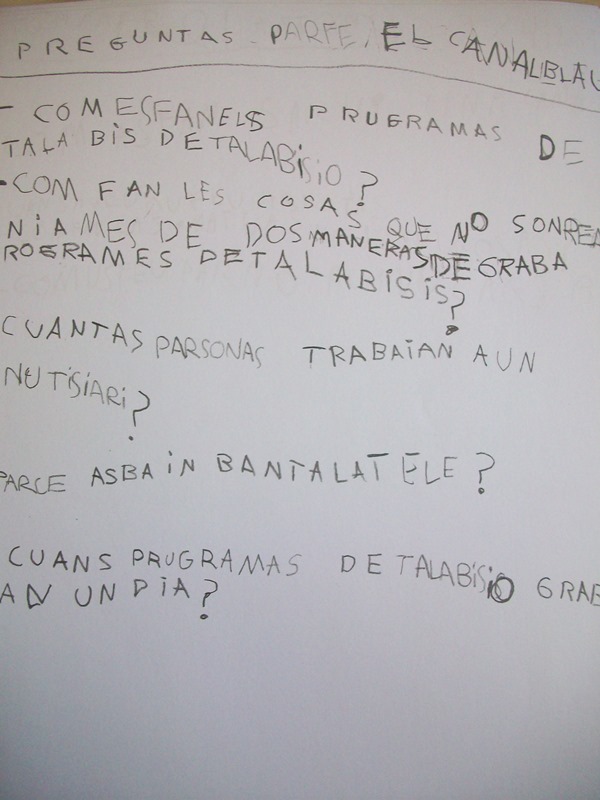 PREGUNTAS PARFE EL CANALBLAU
- COM ESFANELS PRUGRAMAS DE
TALA BIS DETALABISIO?
- COM FAN LES COSAS QUE NO SONREA
NIAMES DE DOSMANERAS DE GRABA
ROGRAMES DETALABISIS?
CUANTAS PARSONAS TRABAIAN AUN
NUTISIARI?
PARCE ASBA IN BANTALATELE?
CUANS PRUGRAMAS DE TALABISIO GRAB
AN UN DIA?